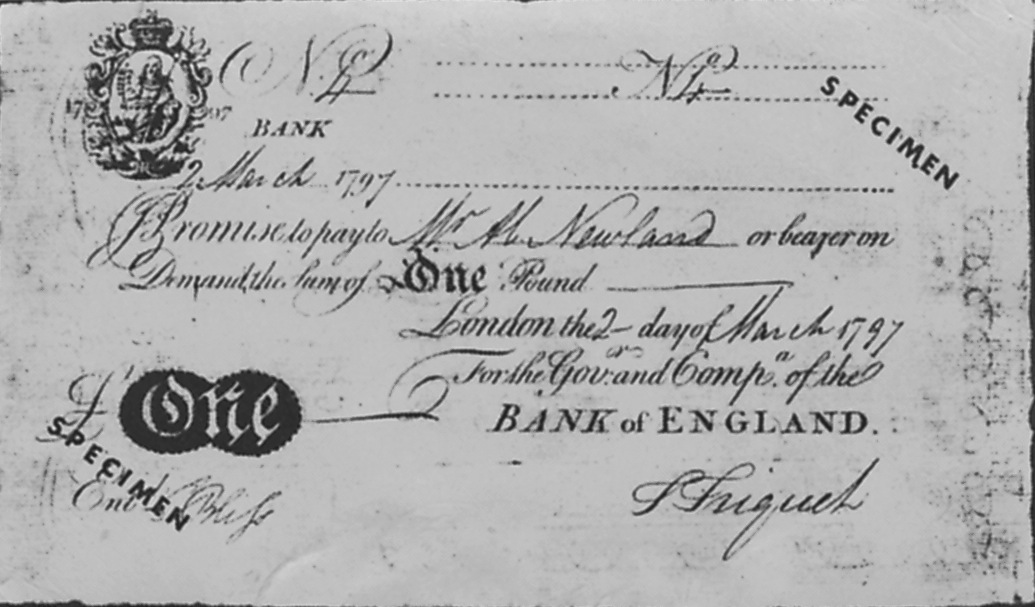 No. 4 No. 4
SPECIMEN
17 97
BANK
2 March 1797
I Promise to pay to Mr. Ab. Newland or bearer on
Demand the Sum of One Pound
London the 2 day of March 1797
For the Govr. and Compa. of the
£ One
BANK of ENGLAND.
SPECIMEN
Entd. Bliss
S Triquet